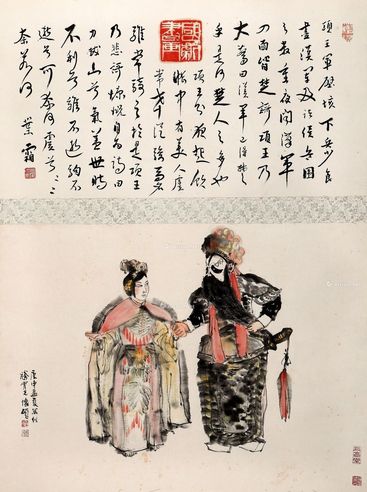 項王軍壁垓下兵少食
盡漢軍及諸侯兵圍
之數重夜聞漢軍
四面皆楚歌項王乃
大驚曰漢軍已得楚
乎是何楚人之多也
項王則夜起飲
帳中有美人虞
常幸從駿馬名
騅常騎之於是項王
乃悲歌慷慨自為詩曰
力拔山兮氣蓋世時
不利兮騅不逝騅不
逝兮可奈何虞兮〻〻
奈若何 葉霜
庚申孟夏